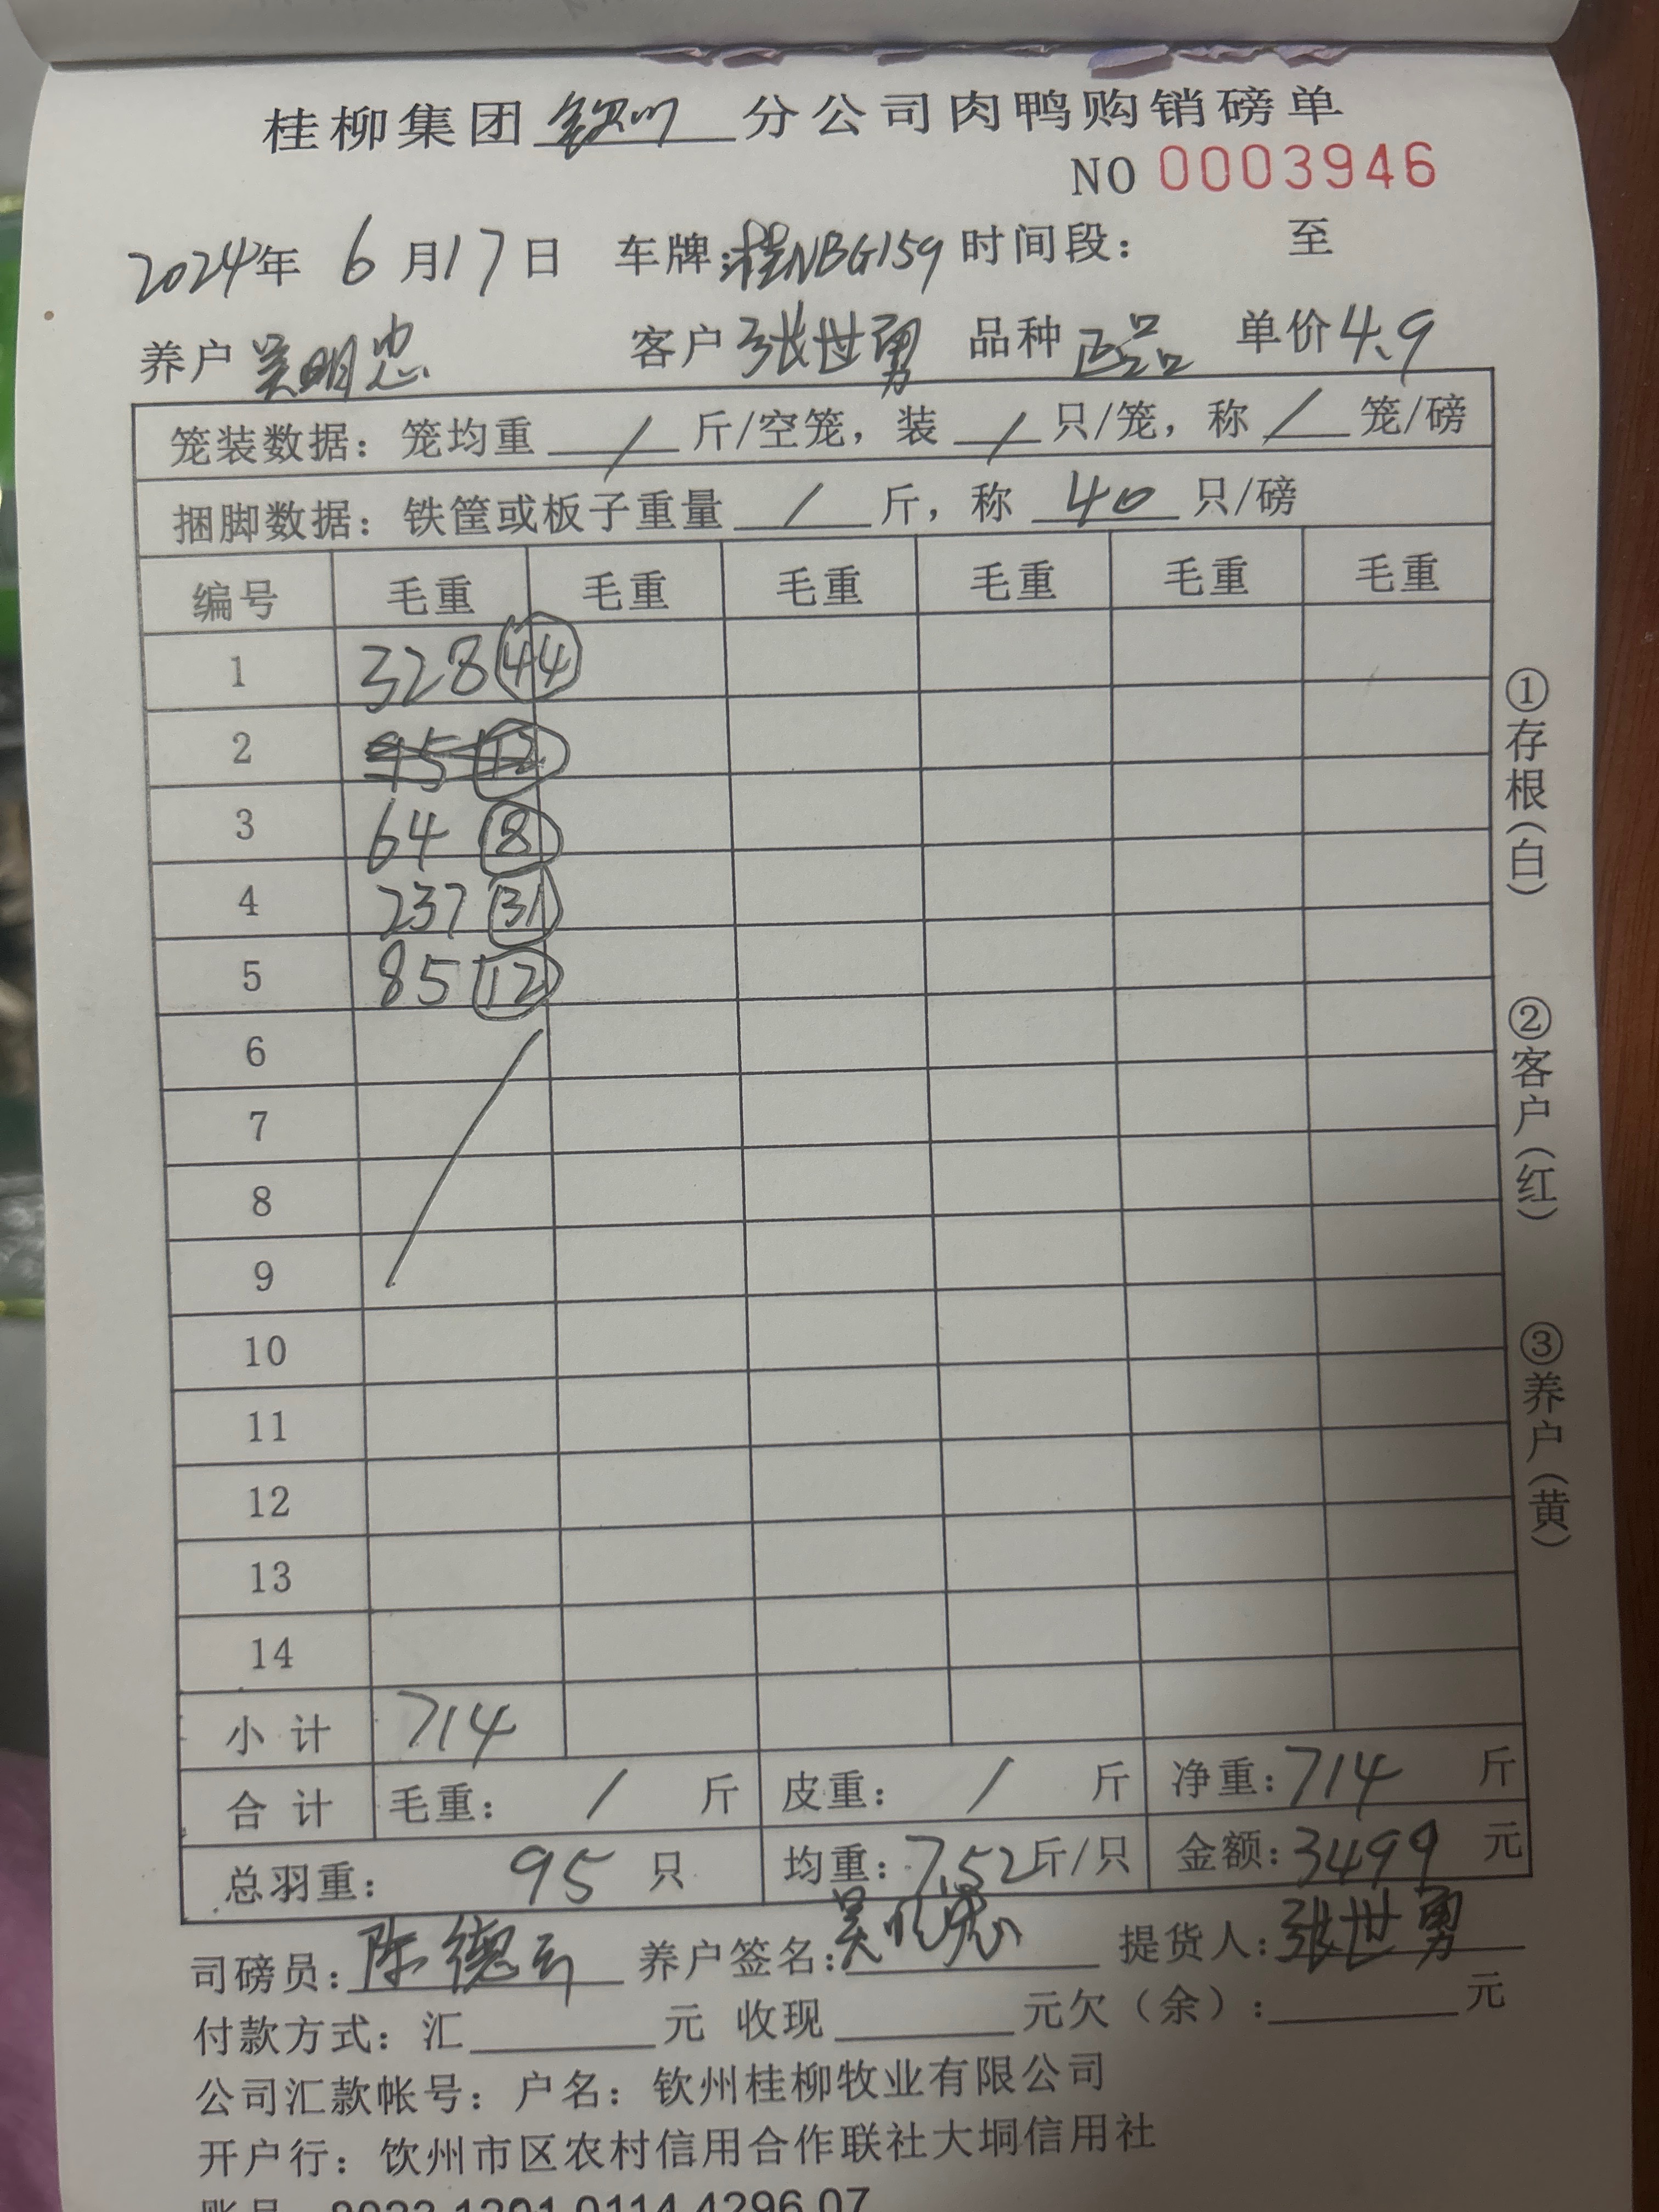 桂柳集团 钦州 分公司肉鸭购销磅单
NO 0003946
2024年 6 月 17 日 车牌:桂NBG159 时间段: 至
养户 吴明忠 客户 张世勇 品种 正品 单价 4.9
笼装数据: 笼均重 / 斤/空笼, 装 / 只/笼, 称 / 笼/磅
捆脚数据: 铁筐或板子重量 / 斤, 称 40 只/磅
编号 毛重 毛重 毛重 毛重 毛重 毛重
1 328 44
2
3 64 8
4 237 31
5 85 12
6
7
8
9
10
11
12
13
14
小计 714
合计 毛重: / 斤 皮重: / 斤 净重: 714 斤
总羽重: 95 只 均重: 7.52 斤/只 金额: 3499 元
司磅员: 陈德 养户签名: 吴明忠 提货人: 张世勇
付款方式: 汇 元 收现 元欠(余): 元
公司汇款帐号: 户名: 钦州桂柳牧业有限公司
开户行: 钦州市区农村信用合作联社大垌信用社
账号 8023 1201 0114 4296 07
①存根(白)
②客户(红)
③养户(黄)